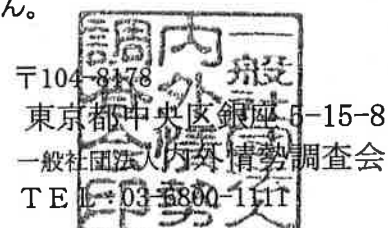 ん。
〒104-8178
東京都中央区銀座5-15-8
一般社団法人内外情勢調査会
TEL:03-6800-1111